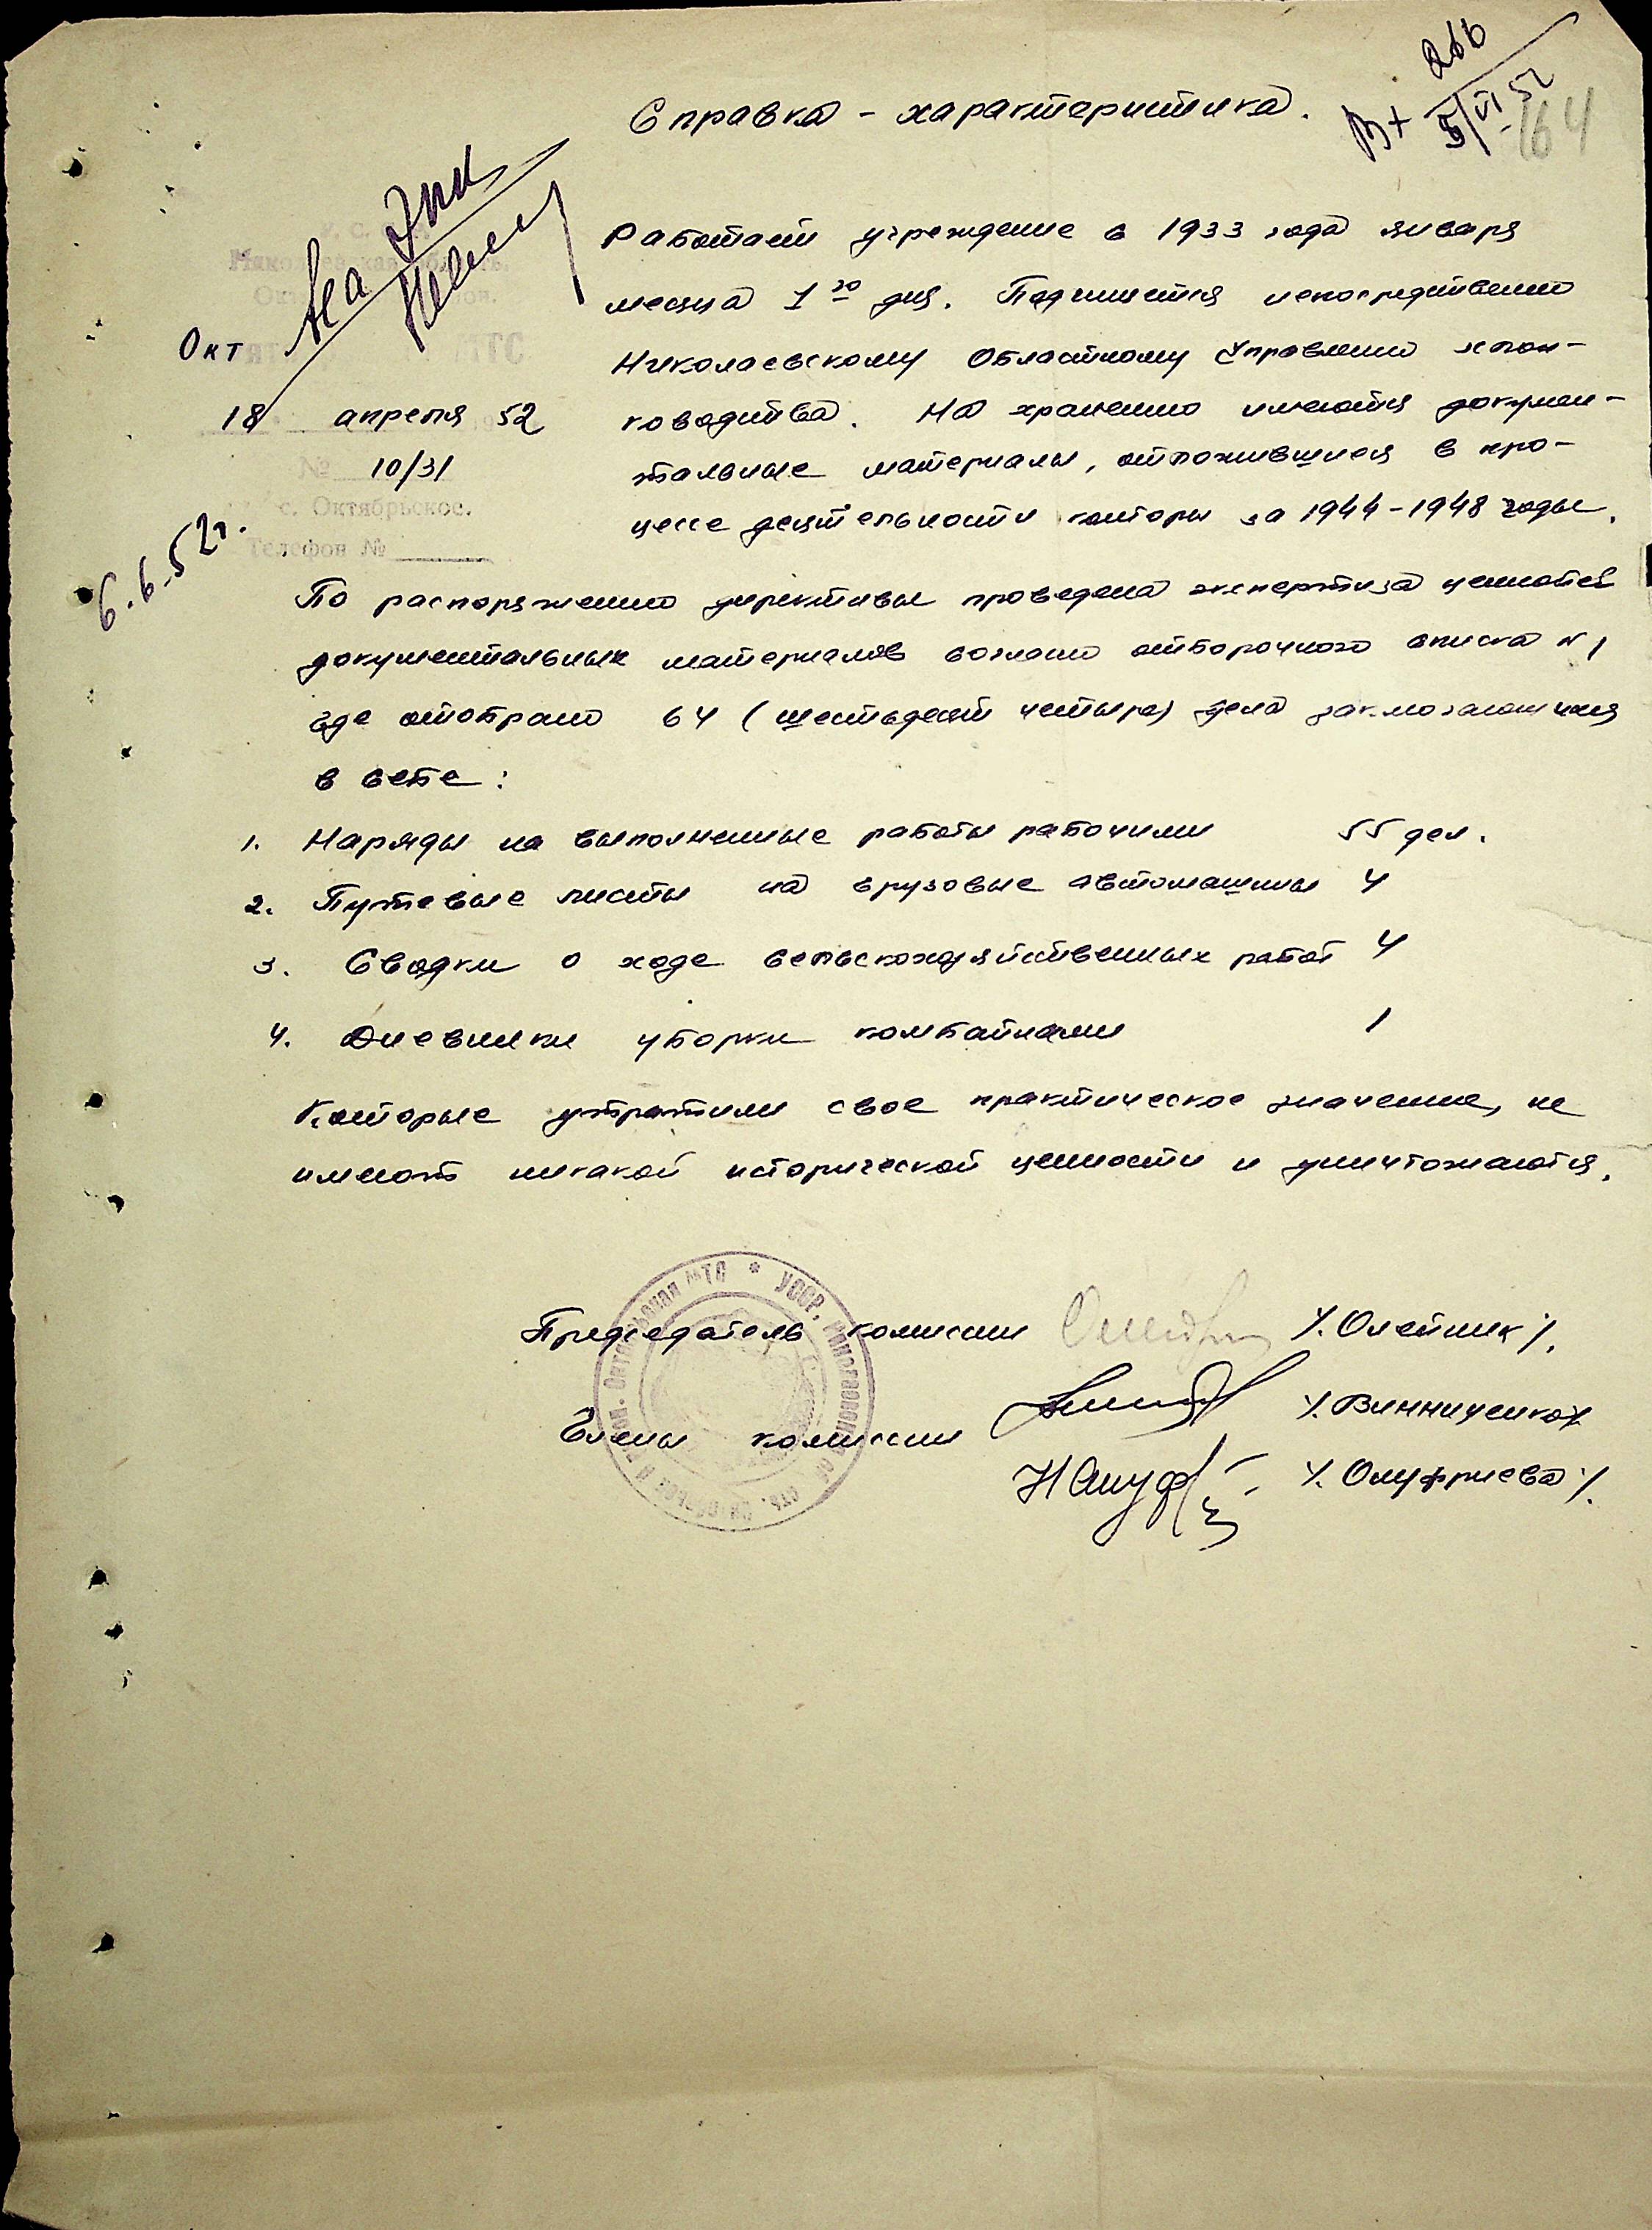 Справка - характеристика.
Вх 266
5/VI 52
164
На
Окт
МТС
18 апреля 52
№ 10/31
с. Октябрьское.
Телефон №
6.6-52г.
Работает учреждение в 1933 года января
месяца 1го дня. Подчиняется непосредственно
Николаевскому Областному Управлению хлоп-
ководства. На хранению имеются докумен-
тальные материалы, отложившиеся в про-
цессе деятельности конторы за 1944-1948 годы.
По распоряжению директивы проведена экспертиза ценностей
документальных материалов согласно отборочного списка №1
где отобрано 64 (шестьдесят четыре) дела заключающихся
в себе:
1. Наряды на выполненные работы рабочими 55 дел.
2. Путевые листы на грузовые автомашины 4
3. Сводки о ходе сельскохозяйственных работ 4
4. Дневники уборки комбайнами 1
Которые утратили свое практическое значение, не
имеют никакой исторической ценности и уничтожаются.
Председатель комиссии /. Олейник /.
Члены комиссии /. Винниченко /
/. Онуфриева /.
УССР, Николаевская МТС